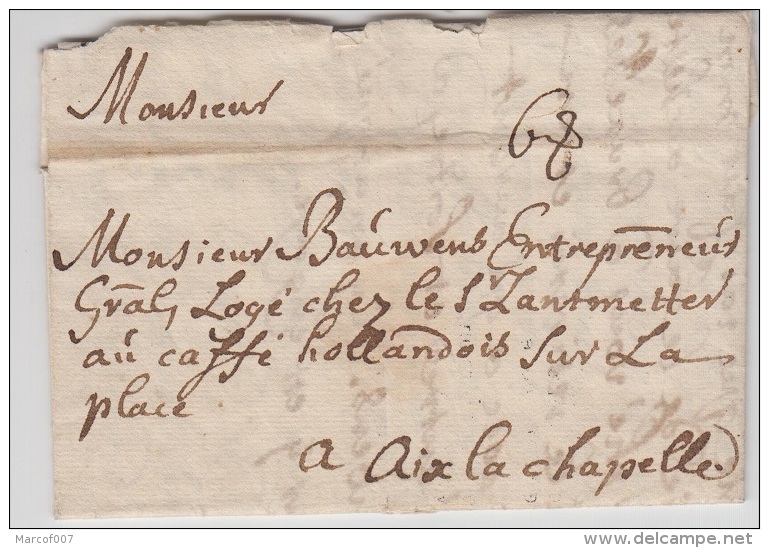 Monsieur
68
Monsieur Bauwens Entreprēneur
Grāal, Logé chez le Sr Zantmetter
au caffé hollandois sur La
place
a Aix la chapelle.
Marcof007
www.delcampe.net